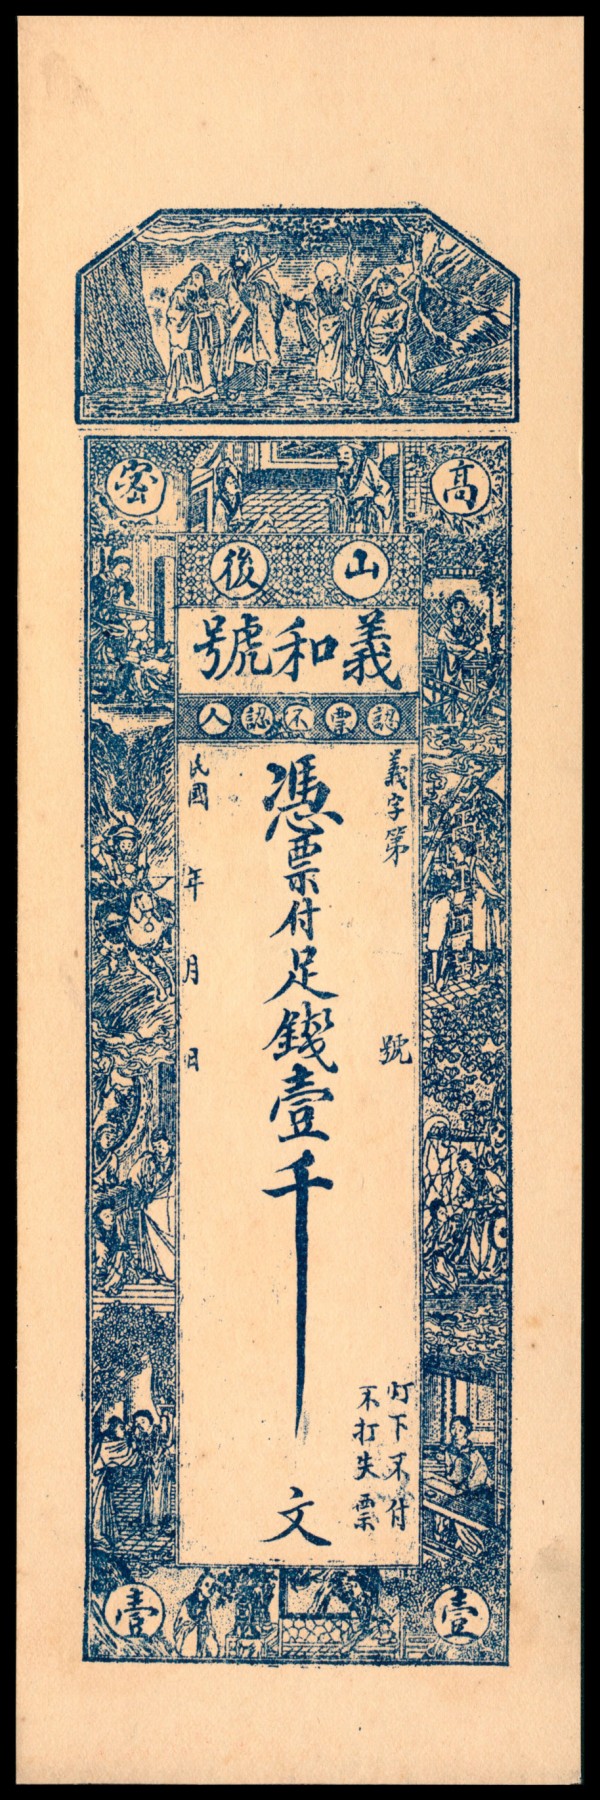 高密
山後
義和號
認票不認人
義字第 號
憑票付足錢壹千文
民國 年 月 日
灯下不付
不打失票
壹 壹